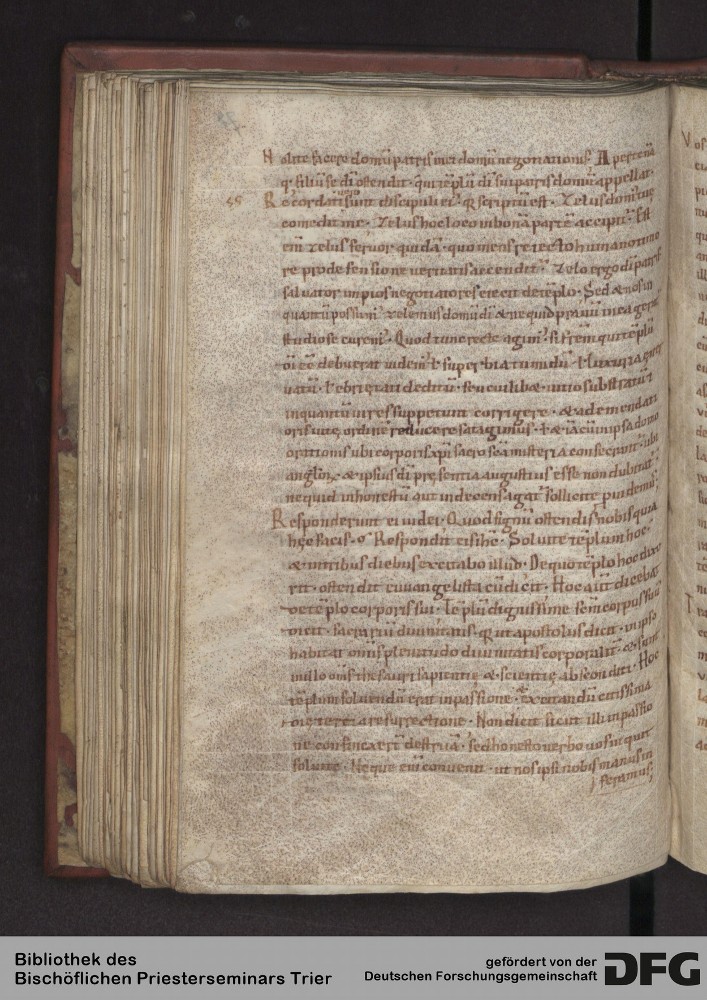 Nolite facere domū patris mei domū negotiationis. Apertenā
q; filiū se dī ostendit. qui tēplū dī sui patris domū appellat.
45 Recordati sunt uero discipuli ei; q; scriptū est. Zelus dom; tuę
comedit me. Zelus hoc loco in bonā partē accipit;. Est
eni zelus feruor quidā. quo mens reiecto humano timo
re pro defensione ueritatis accendit;. Zelo ergo dī patris
saluator impios negotiatores eiecit de tēplo. Sed & nos in
quantū possum; zelem; domū dī & ne quid prauū in ea gerat;
studiose curem;. Quod tunc recte agim; si frēm qui tēplū
dī eē debuerat uidem; ł superbia tumidū. ł luxuria
uatū. ł ebrietati deditū. seu cuilibet uitio substratū
inquantū uires suppetunt corrigere. & ad emendati
oris uitę ordinē reducere satagimus. ł & iā cū in ipsa domo
orationis ubi corporis xp̄i sacrosca misteria consecrant;. ubi
anglōꝝ & ipsius dī pręsentia augustius esse non dubitat;
ne quid inhonestū aut indecens agat; sollicite puidem;.
Responderunt ei iudei. Quod signū ostendis nobis quia
hęc facis. Respondit eis ihc̄. Soluite tēplum hoc.
& in tribus diebus excitabo illud. De quo tēplo hoc dixe
rit. ostendit euuangelista cū dicit. Hoc aūt dicebat
de tēplo corporis sui. Tēplū dignissime sēm corpus suū
dicit. sacrariū diuinitatis. q; ut apostolus dicit. in ipso
habitat oīnis plenitudo diuinitatis corporalit;. & sunt
in illo oīns thesauri sapientię & scientię absconditi. Hoc
tēplum soluendū erat in passione. & excitandū citissima
die tertia resurrectione. Non dicit sicut illi in passio
ne confinxert destruā. sed honesto uerbo uos inquit
soluite. Neque enī conuenit. ut nos ipsi nobis manus in
feramus;
Bibliothek des
Bischöflichen Priesterseminars Trier
gefördert von der
Deutschen Forschungsgemeinschaft
DFG